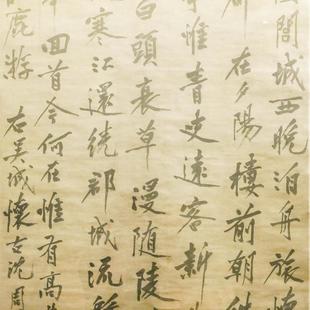 闔城西晚泊舟旅懷
在夕陽樓前朝
惟青史遠客新
白頭衰草漫随陵
寒江還繞郡城流
回首今何在惟有高
鹿游
右吴城懷古沈周